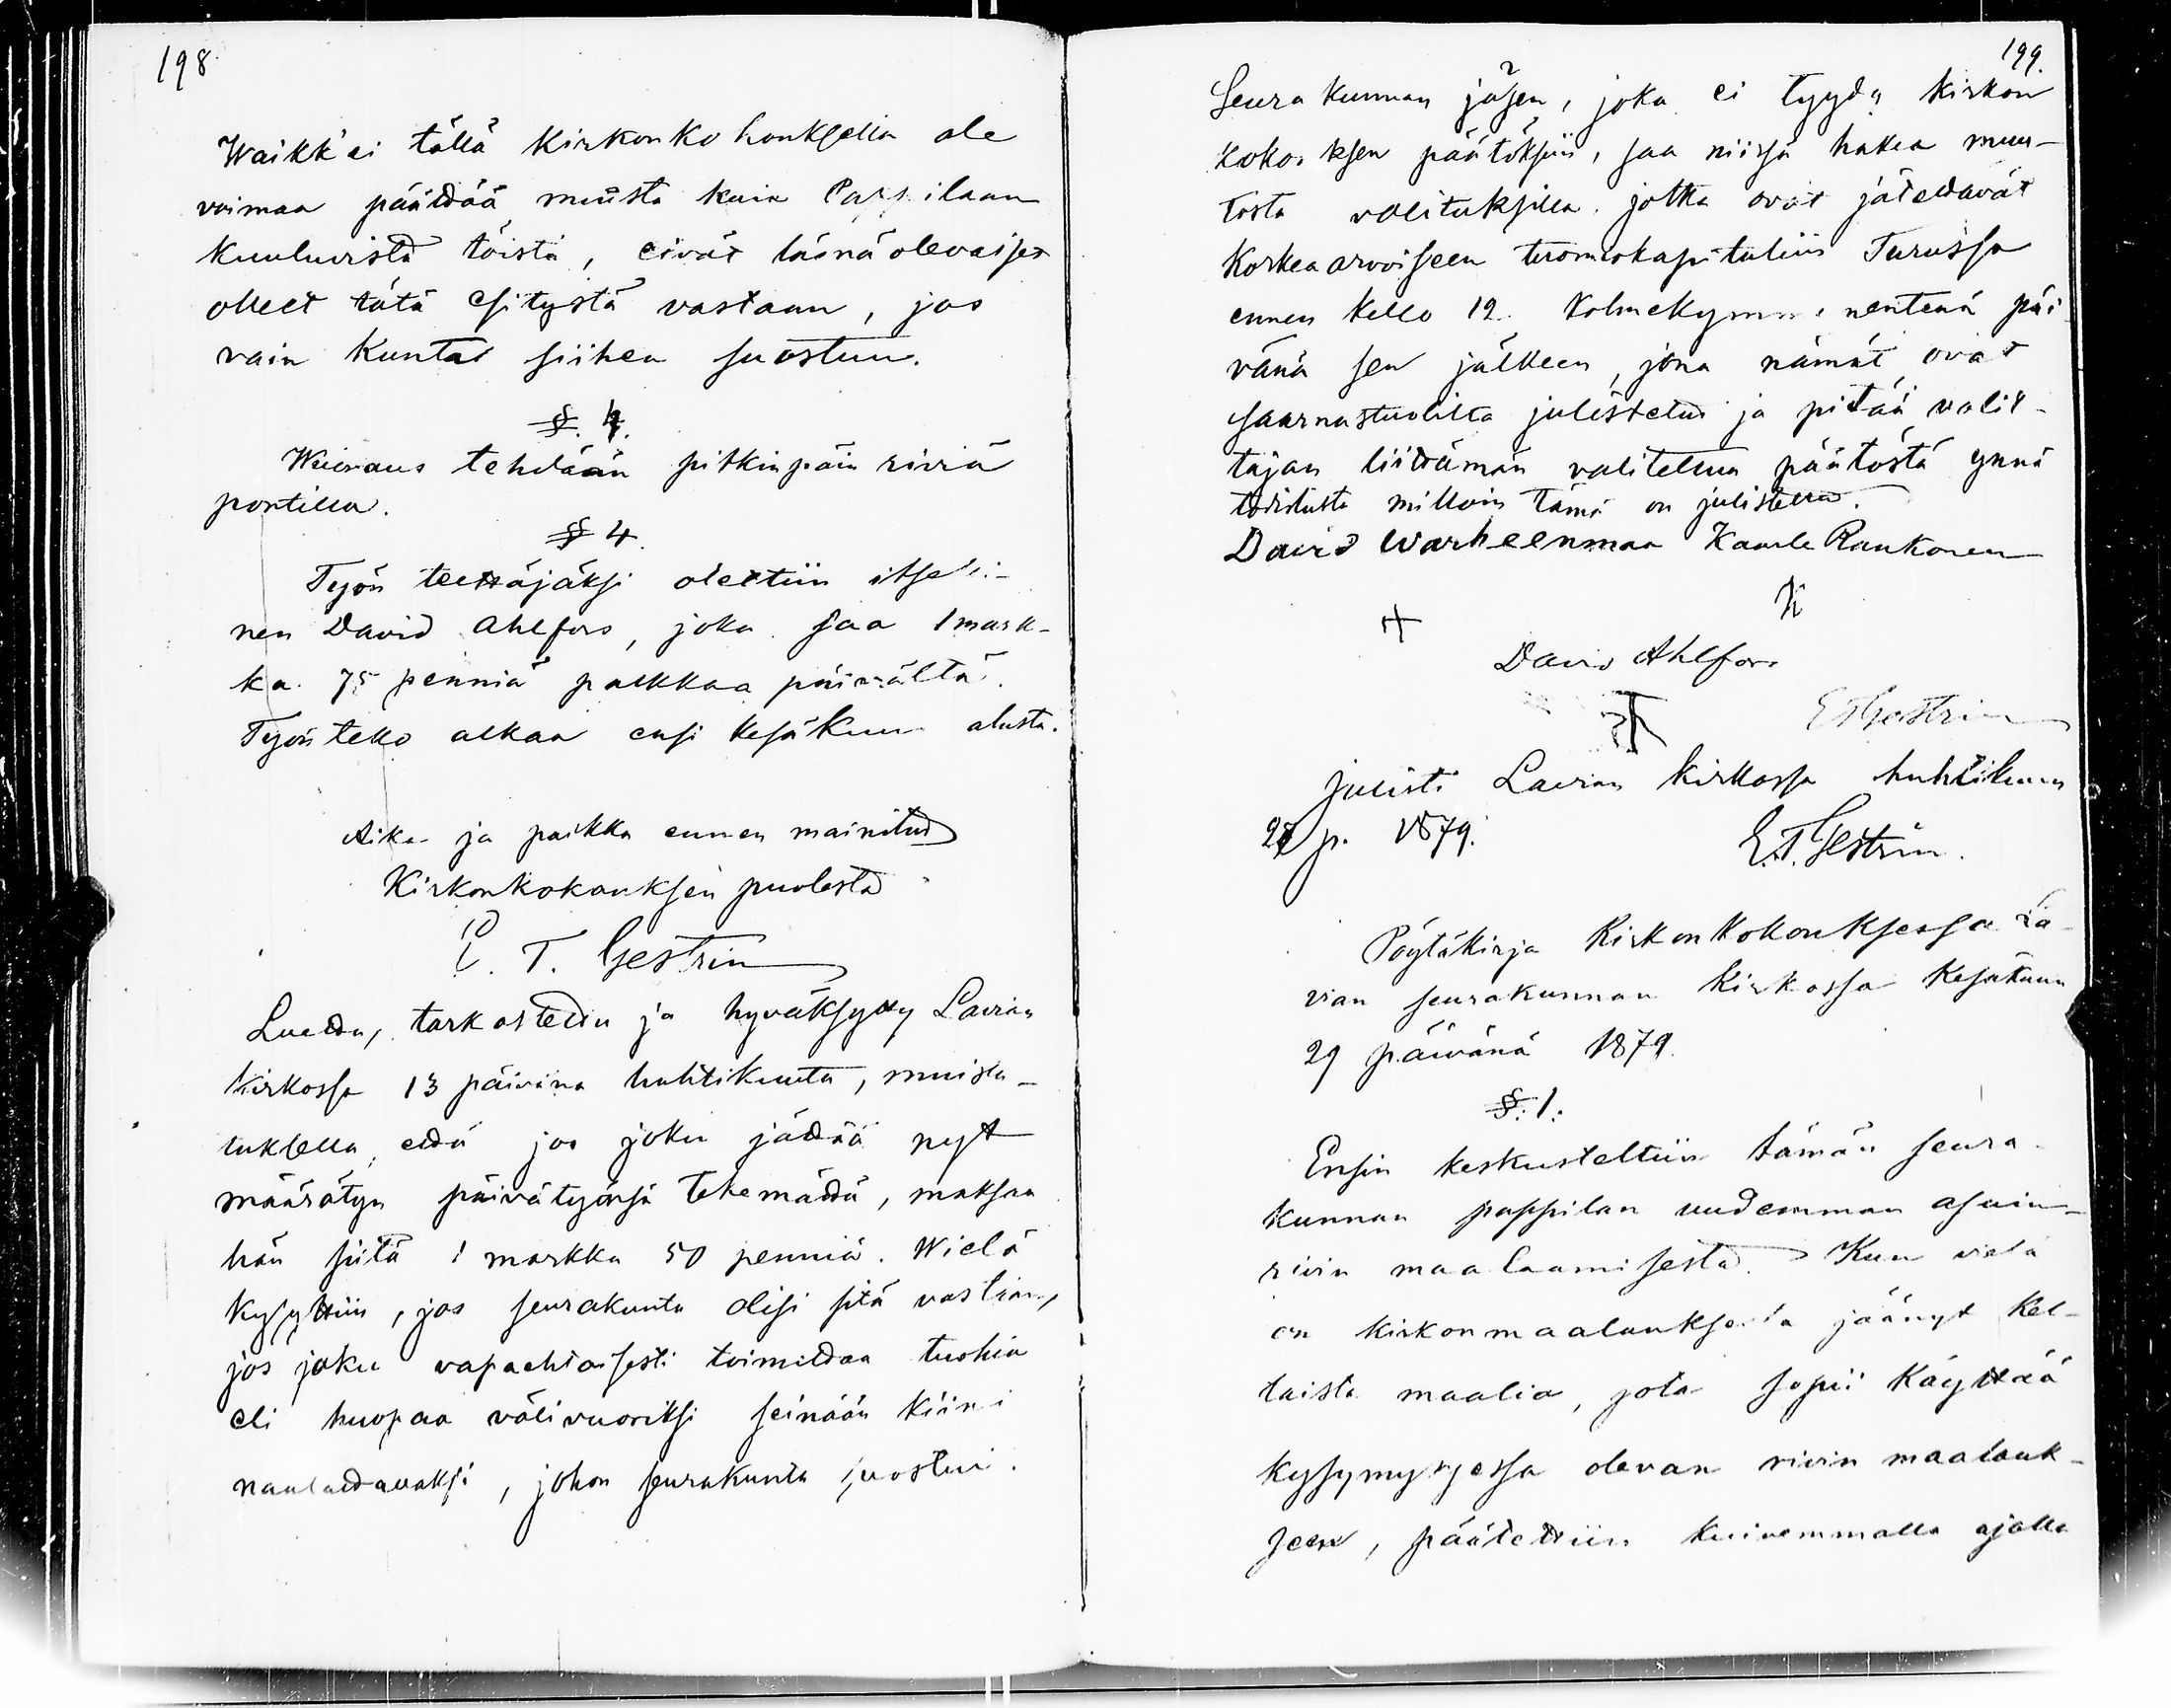 198
Waikk'ei tällä kirkonkokouksella ole
voimaa päättää muista kuin Pappilaan
kuuluvista töistä, eivät läsnäolevaiset
olleet tätä esitystä vastaan, jos
vain kuntas siihen suostuu.
§. 4.
Wuoraus tehdään pitkinpäin riviä
pontilla.
§ 4.
Työn teettäjäksi otettiin itselli-
nen David Ahlfors, joka saa 1 mark-
ka 75 penniä palkkaa päivältä.
Työn teko alkaa ensi kesäkuun alusta.
Aika ja paikka ennen mainitud
Kirkonkokouksen puolesta
E. T. Gestrin
Luettu, tarkastettu ja hyväksytty Lavian
kirkossa 13 päivänä huhtikuuta, muistu-
tuksella, että jos joku jättää nyt
määrätyn päivätyönsä tekemättä, maksaa
hän siitä 1 markka 50 penniä. Wielä
kysyttiin, jos seurakunta olisi sitä vastaan,
jos joku vapaehtoisesti toimittaa tuohia
eli huopaa välivuoriksi seinään kiini
naulattavaksi, johon seurakunta suostui.
199.
Seurakunnan jäsen, joka ei tyydy kirkon
kokouksen päätöksiin, saa niissä hakea muu-
tosta valituksilla, jotka ovat jätettävät
Korkeaarvoiseen tuomiokapituliin Turussa
ennen kello 12 kolmekymmenentenä päi
vänä sen jälkeen, jona nämät ovat
saarnastuolilta julistetut ja pitää valit-
tajan liittämän valitettua päätöstä ynnä
todistusta milloin tämä on julistettu.
David Warheenmaa Kaarle Raukonen
David Ahlfors
E T Gestrin
Julisti Lavian kirkossa huhtikuun
27 p. 1879.
E. T. Gestrin.
Pöytäkirja Kirkonkokouksessa La-
vian seurakunnan Kirkossa Kesäkuun
29 päivänä 1879.
§. 1.
Ensin keskusteltiin tämän seura-
kunnan pappilan uudemman asuin-
rivin maalaamisesta. Kun vielä
on kirkonmaalauksesta jäänyt kel-
taista maalia, jota sopii käyttää
kysymyksessä olevan rivin maalauk-
seen, päätettiin kuivemmalla ajalla